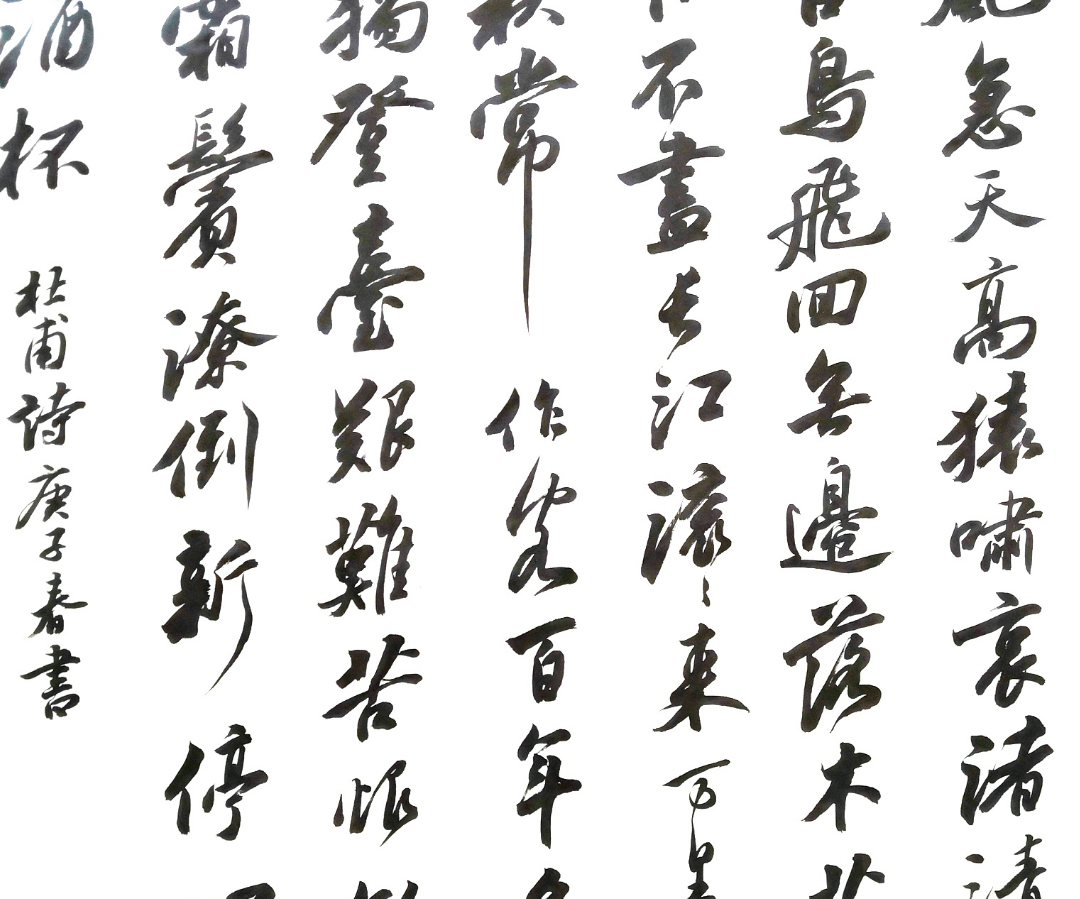 急天高猿嘯哀渚清
鳥飛回無邊落木
不盡長江滾〻来万里
秋常作客百年
獨登臺艱難苦恨
霜鬢潦倒新停
酒杯 杜甫詩庚子春書